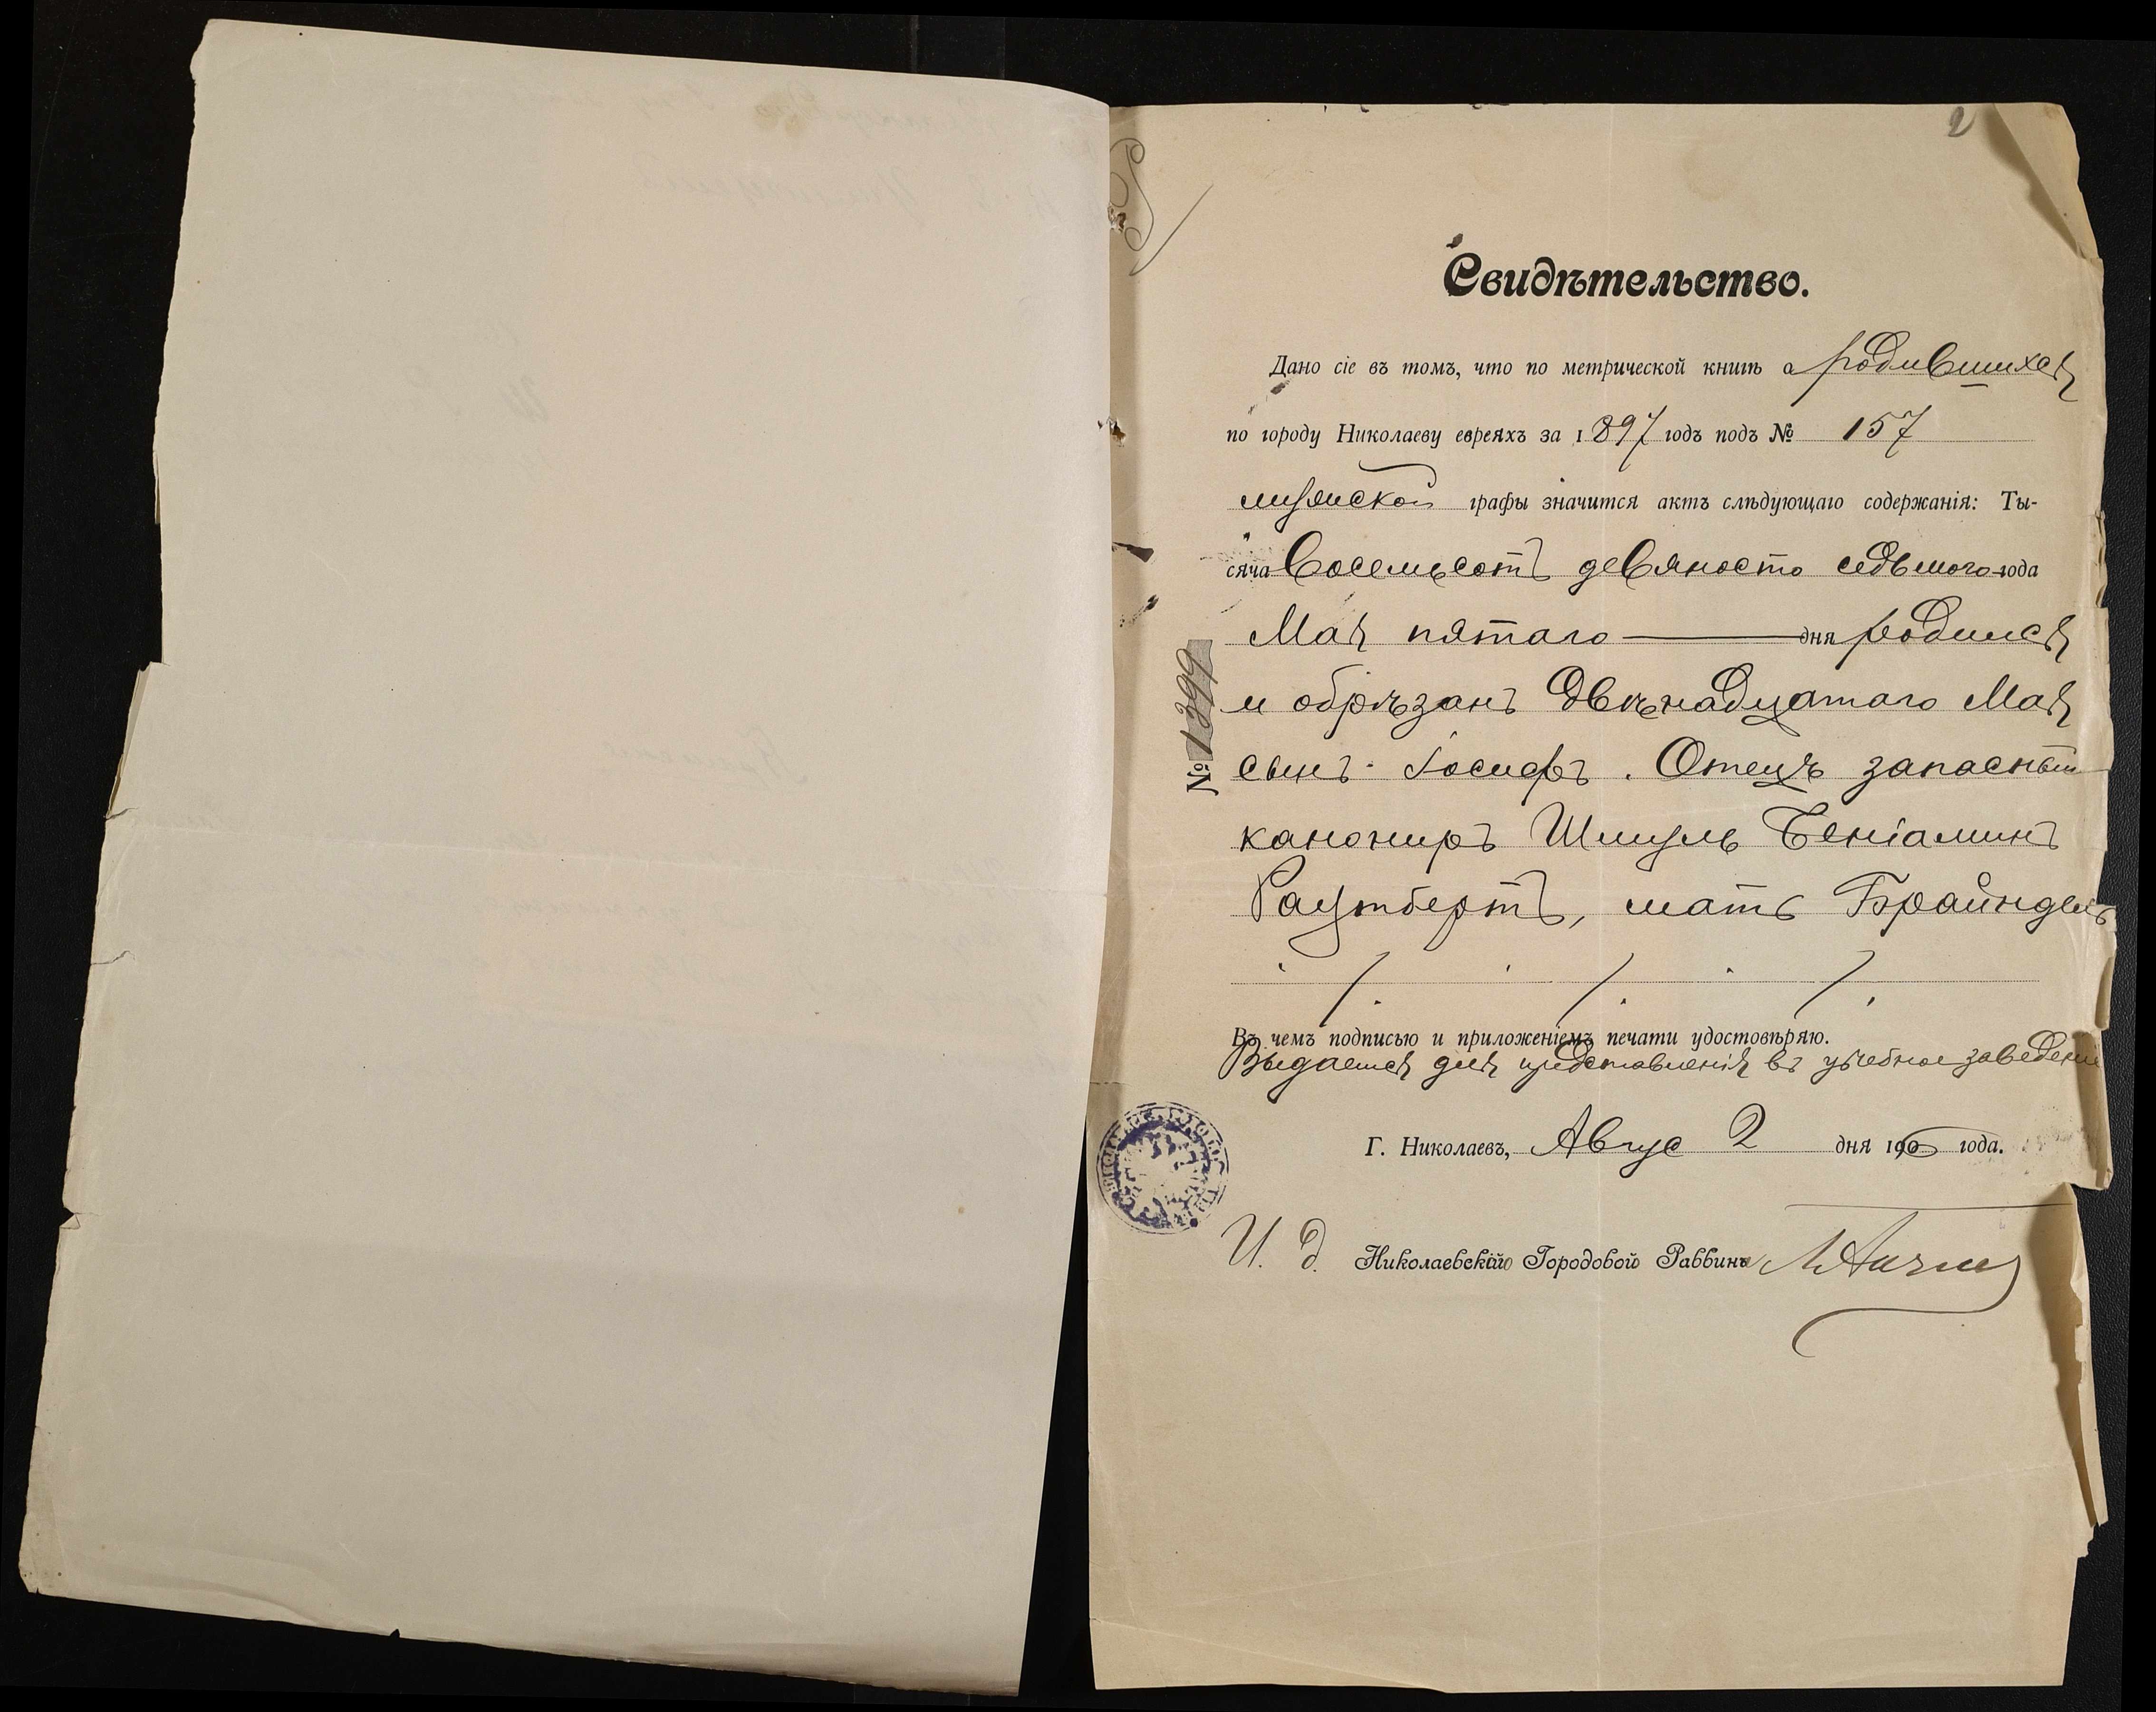 2
Свидѣтельство.
Дано сіе въ томъ, что по метрической книгѣ о родившихся
по городу Николаеву евреяхъ за 1897 годъ подъ № 157
мужской графы значится актъ слѣдующаго содержанія: Ты-
сяча восемьсотъ девяносто седьмого года
Мая пятаго дня родился
и обрѣзанъ двѣнадцатаго Мая
сынъ Іосифъ. Отецъ запасный
канониръ Шмуль Беніаминъ
Раутбертъ, мать Брайндель
Въ чемъ подписью и приложеніемъ печати удостовѣряю.
Выдается для представленія въ учебное заведеніе
Г. Николаевъ, Авгус 2 дня 190 года.
И. д. Николаевскій Городовой Раввинъ
№ 1399